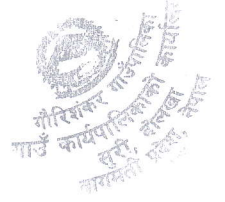 गौरिशंकर गाउँपालिका
गाउँ कार्यपालिकाको कार्यालय
सुरी, दोलखा
बागमती प्रदेश, नेपाल